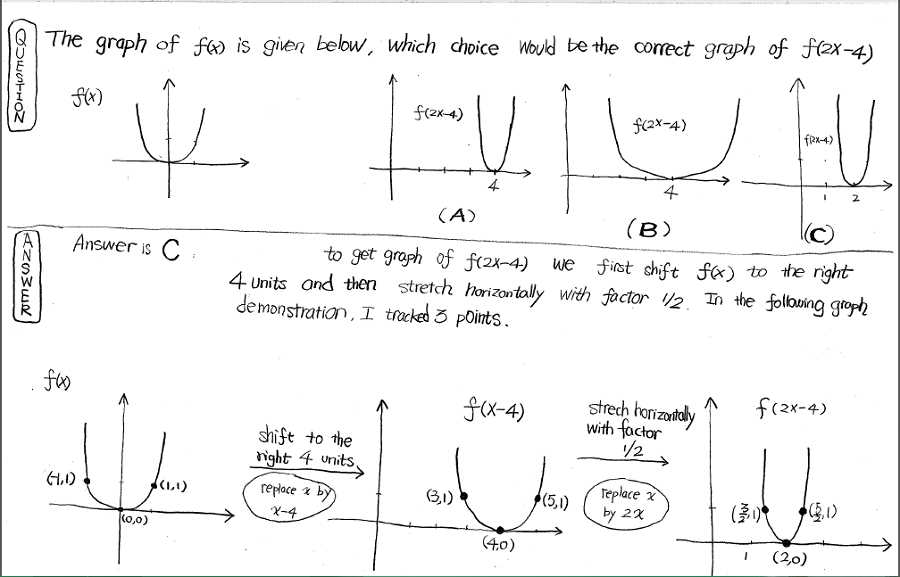 QUESTION
The graph of f(x) is given below, which choice would be the correct graph of f(2x-4)
f(x)
f(2x-4)
4
(A)
f(2x-4)
4
(B)
f(2x-4)
1 2
(C)
ANSWER
Answer is C
to get graph of f(2x-4) we first shift f(x) to the right
4 units and then stretch horizontally with factor 1/2. In the following graph
demonstration, I tracked 3 points.
f(x)
(-1,1)
(1,1)
(0,0)
shift to the
right 4 units
replace x by
x-4
f(x-4)
(3,1)
(5,1)
(4,0)
strech horizontally
with factor
1/2
replace x
by 2x
f(2x-4)
(3/2,1)
(5/2,1)
1 (2,0)